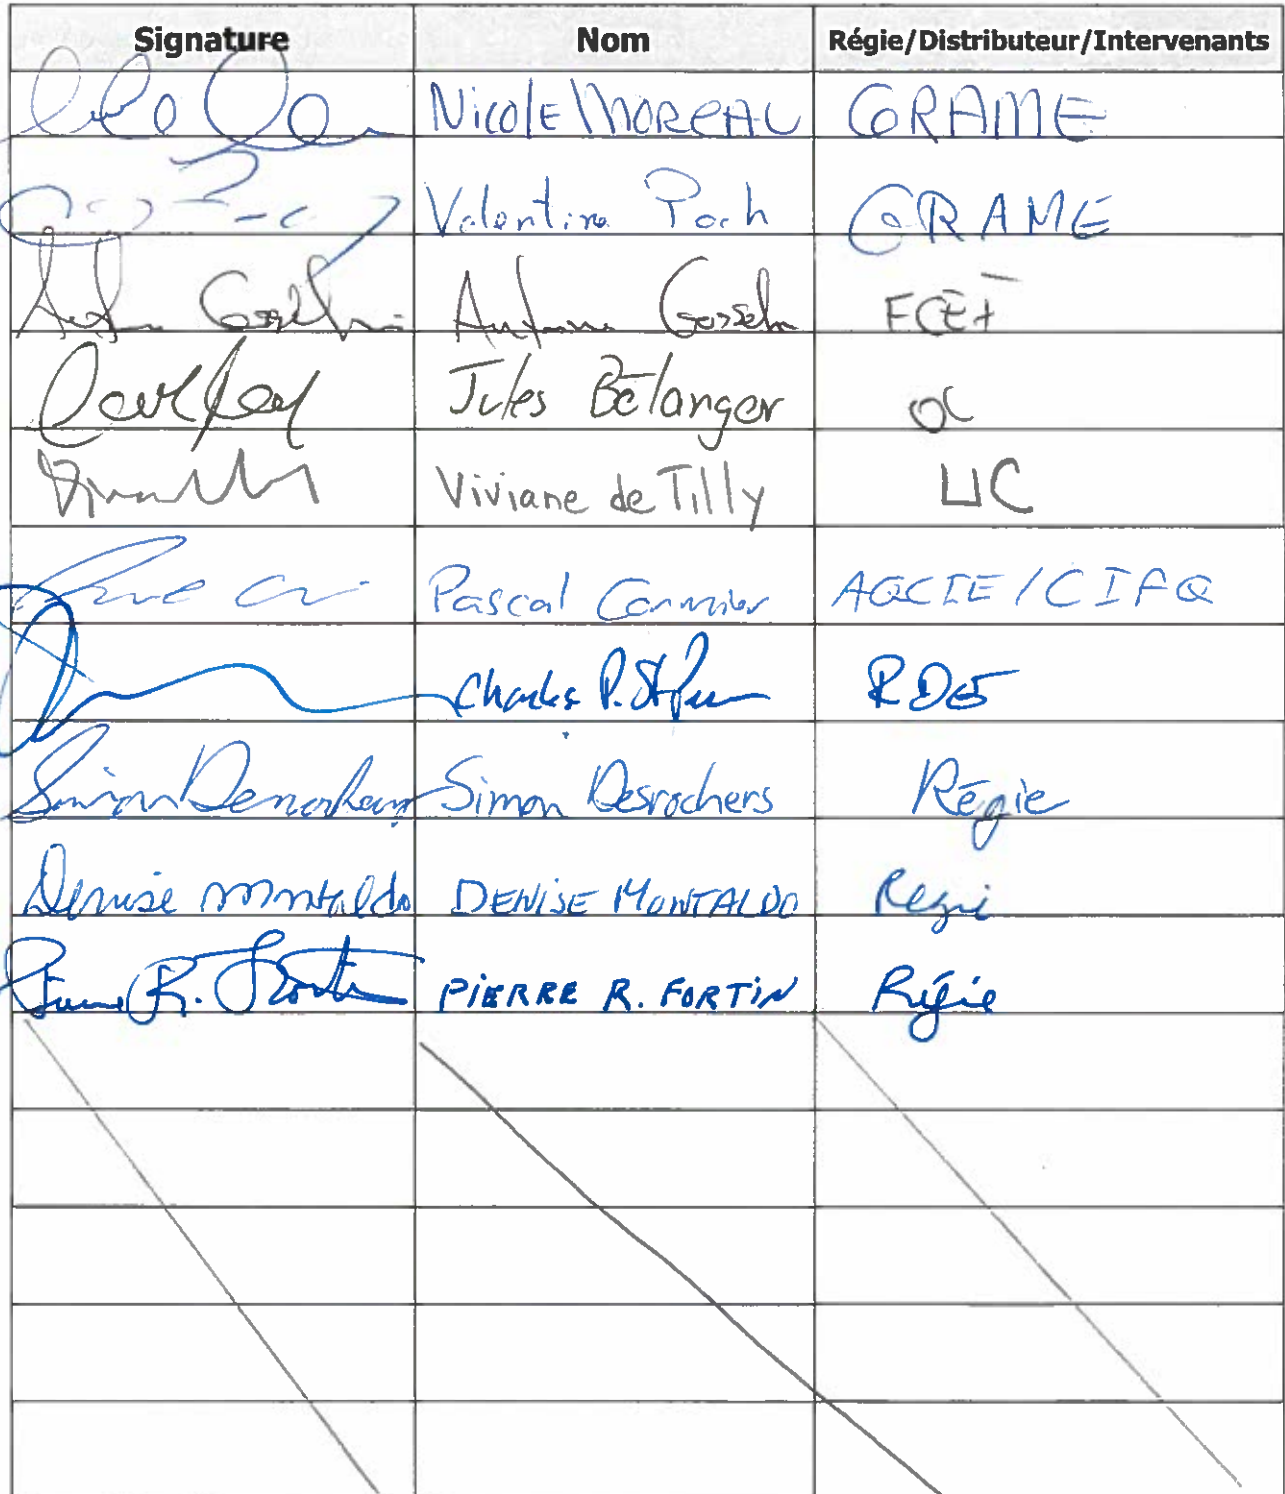 Signature Nom Régie/Distributeur/Intervenants
Nicole MOREAU GRAME
Valentine Poch GRAME
Gosselin
Jules Bélanger OC
Viviane de Tilly UC
Pascal Cormier AQCIE/CIFQ
Charles P. St-Pierre
Simon Desrochers Simon Desrochers Régie
Denise Montaldo DENISE MONTALDO Régie
Pierre R. Fortin PIERRE R. FORTIN Régie